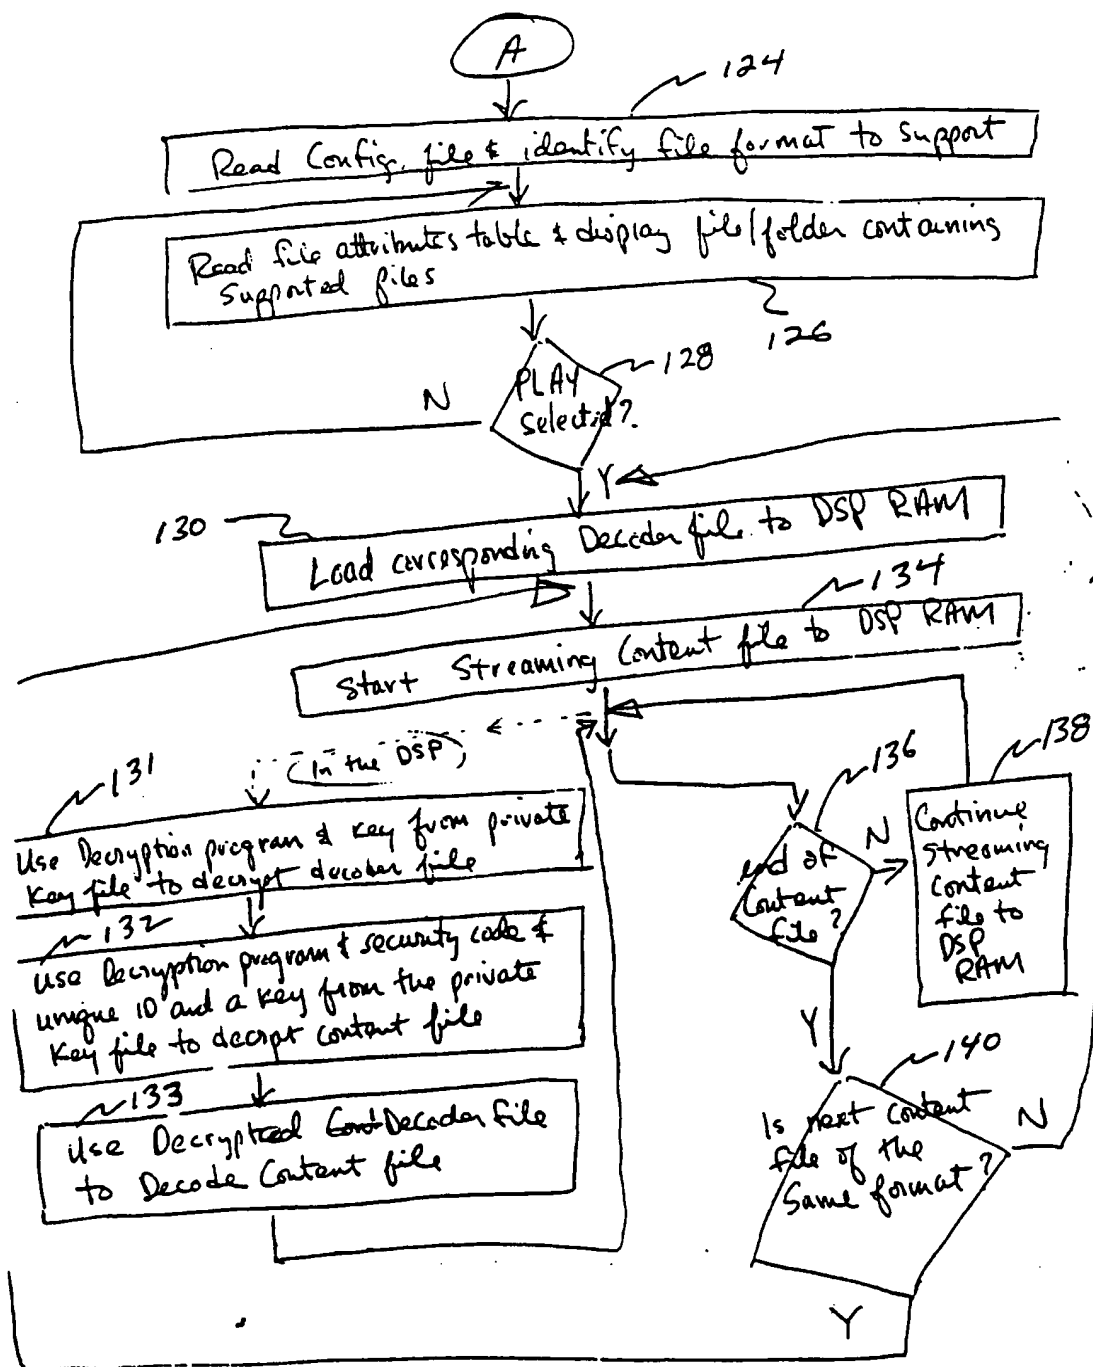 A
124
Read Config. file & identify file format to support
Read file attributes table & display file/folder containing
supported files
126
128
PLAY
selected?
N
Y
130
Load corresponding Decoder file to DSP RAM
134
Start Streaming Content file to DSP RAM
(In the DSP)
131
Use Decryption program & key from private
key file to decrypt decoder file
132
Use Decryption program & security code &
unique ID and a key from the private
key file to decrypt content file
133
Use Decrypted Decoder file
to Decode Content file
136
end of
Content
file?
N
Y
138
Continue
streaming
content
file to
DSP
RAM
140
Is next content
file of the
Same format?
N
Y